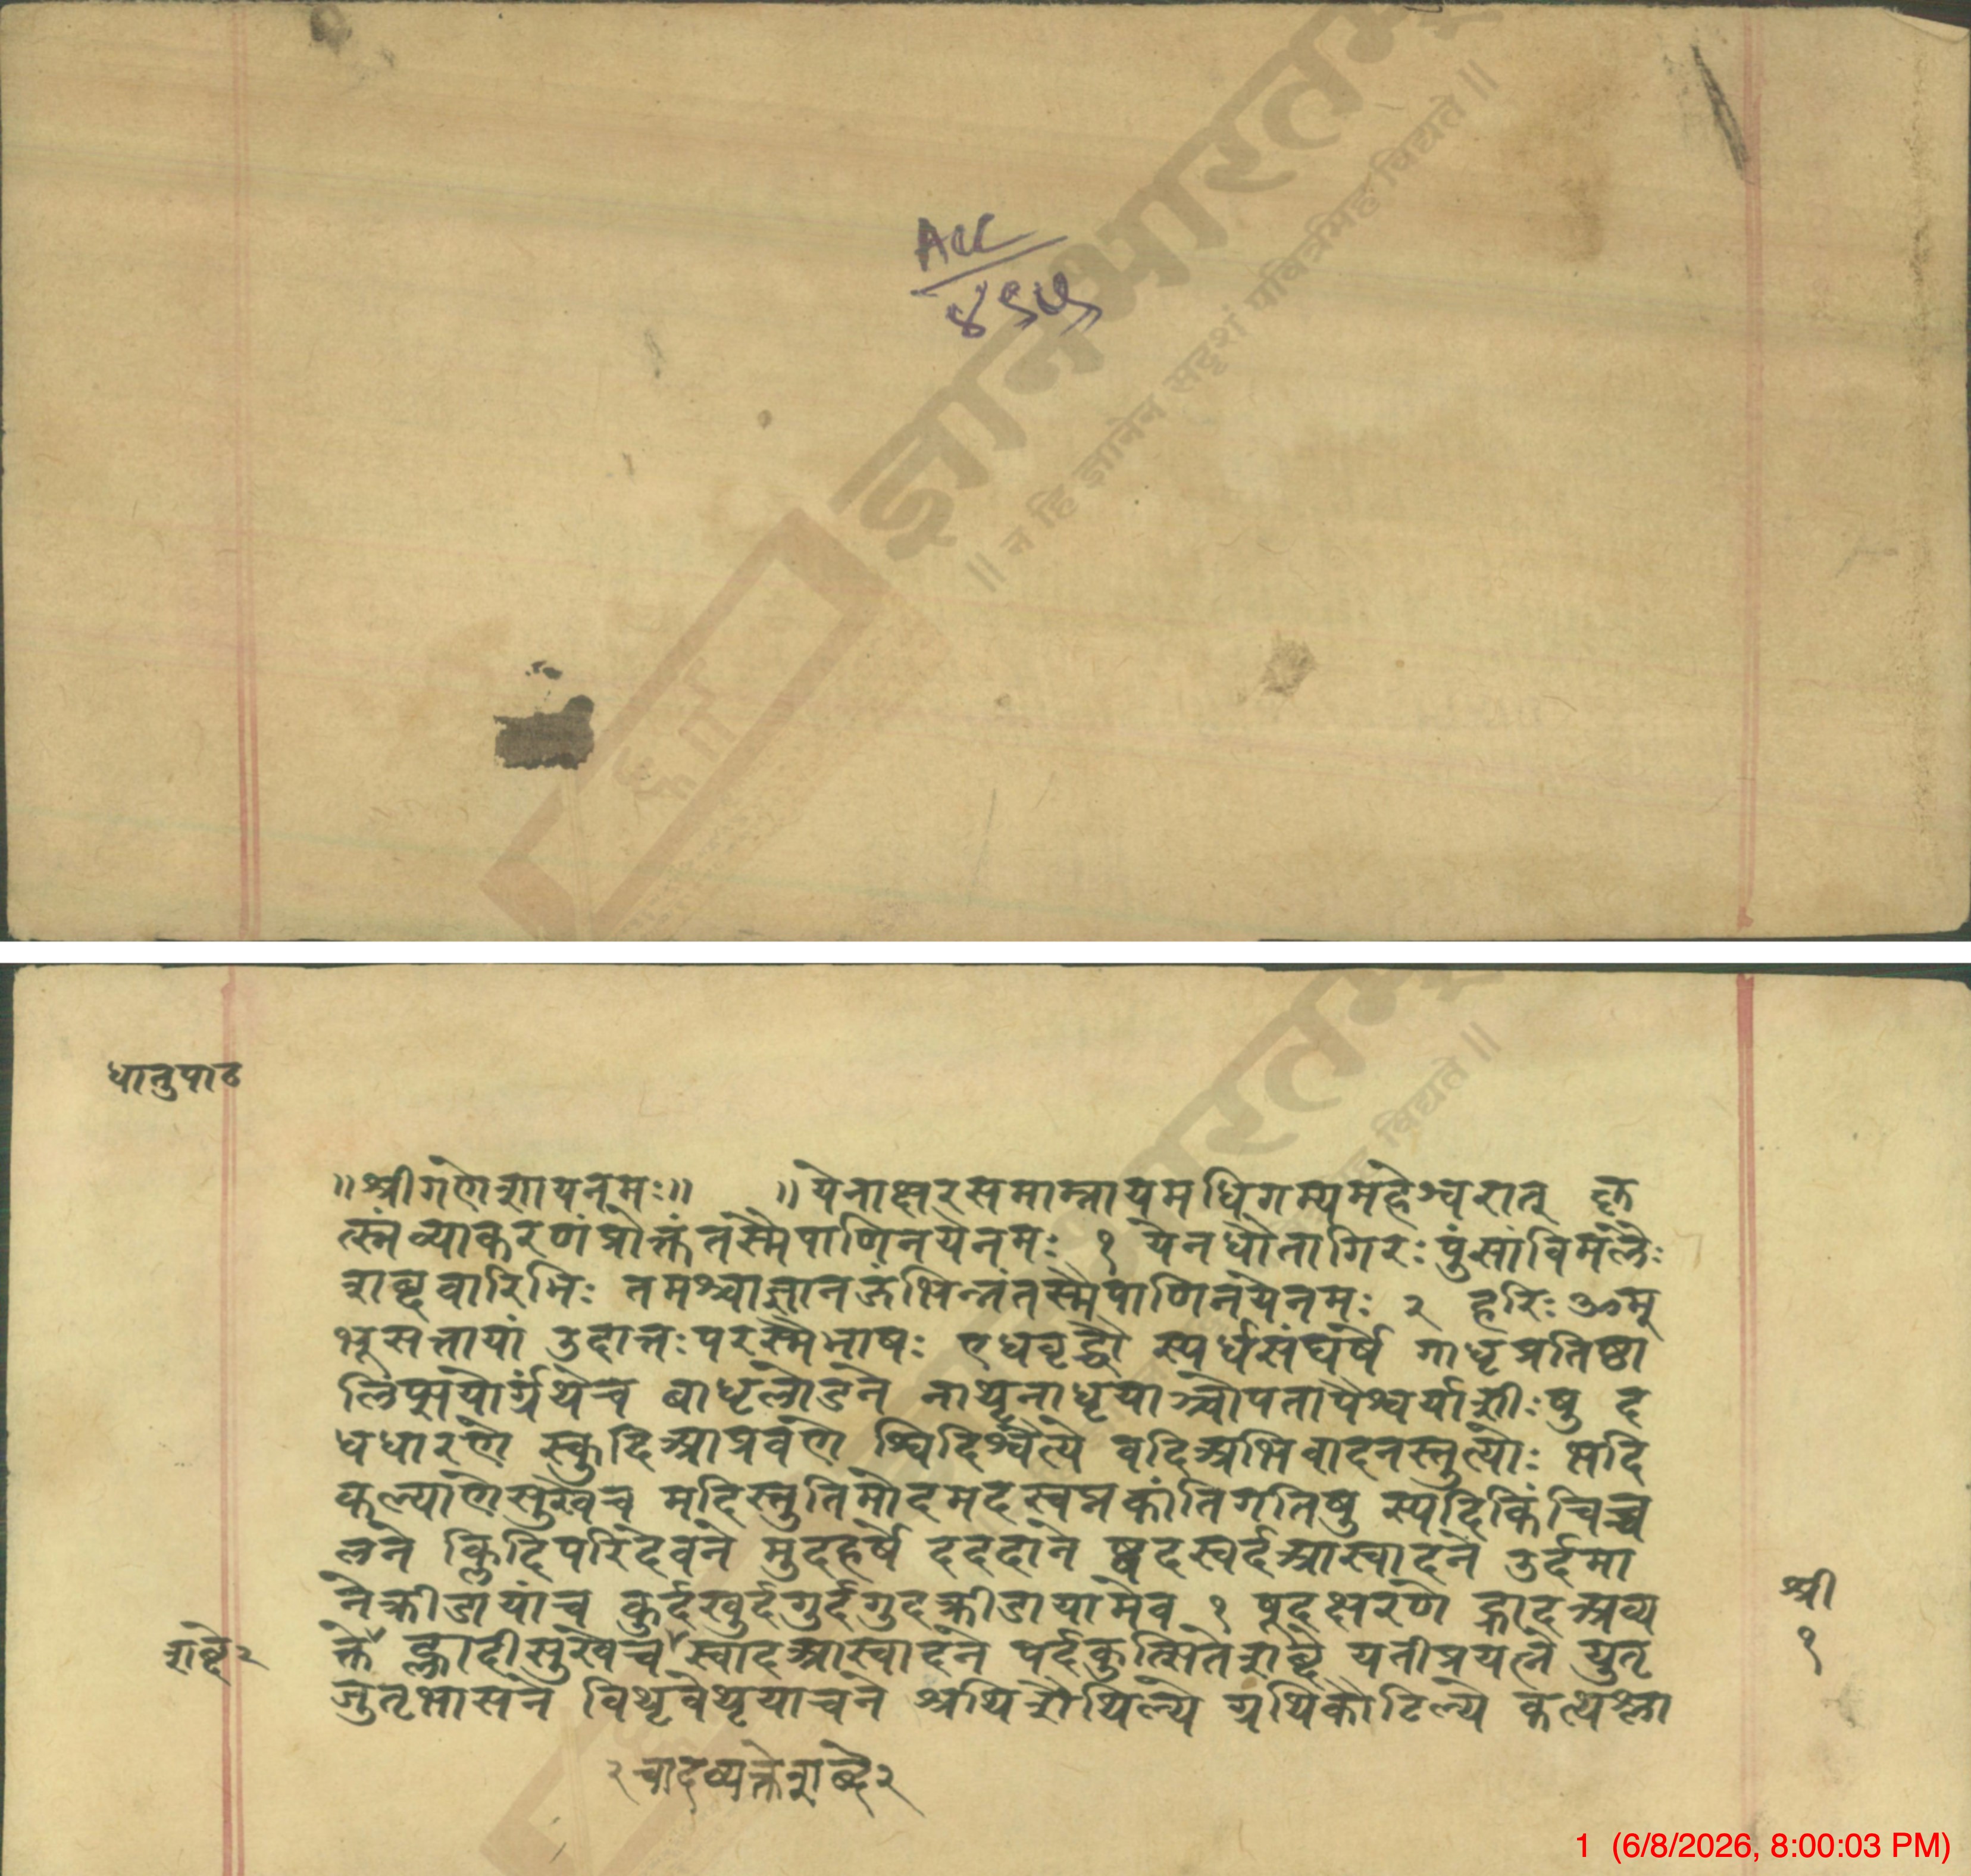 Acc
४९५
ज्ञानभारतम्
॥ न हि ज्ञानेन सदृशं पवित्रमिह विद्यते ॥
धातुपाठ
॥श्रीगणेशायनमः॥ ॥येनाक्षरसमाम्नायमधिगम्यमहेश्वरात् कृ
त्स्नंव्याकरणंप्रोक्तंतस्मैपाणिनयेनमः १ येनधौतागिरःपुंसांविमलैः
शब्दवारिभिः तमश्चाज्ञानजंभिन्नंतस्मैपाणिनयेनमः २ हरिःॐम्
भूसत्तायां उदात्तःपरस्मैभाषः एधवृद्धौ स्पर्धसंघर्षे गाधृप्रतिष्ठा
लिप्सयोर्ग्रंथेच बाधृलोडने नाथृनाधृयाञ्चोपतापैश्वर्याशीःषु द
धधारणे स्कुदिआप्रवणे श्विदिश्वैत्ये वदिअभिवादनस्तुत्योः भदि
कल्याणेसुखेच मदिस्तुतिमोदमदस्वप्नकांतिगतिषु स्पदिकिंचिच्च
लने क्लिदिपरिदेवने मुदहर्षे दददाने ष्वदस्वर्दआस्वादने उर्दमा
नेक्रीडायांच कुर्दखुर्दगुर्दगुदक्रीडायामेव १ षूदक्षरणे ह्रादअव्य
क्ते ह्लादीसुखेच स्वादआस्वादने पर्दकुत्सितेशब्दे यतीप्रयत्ने युतृ
जुतृभासने विथृवेथृयाचने श्रथिशैथिल्ये ग्रथिकौटिल्ये कत्थश्ला
शब्दे२
श्री
१
२चादव्यक्तेशब्दे२
1 (6/8/2026, 8:00:03 PM)